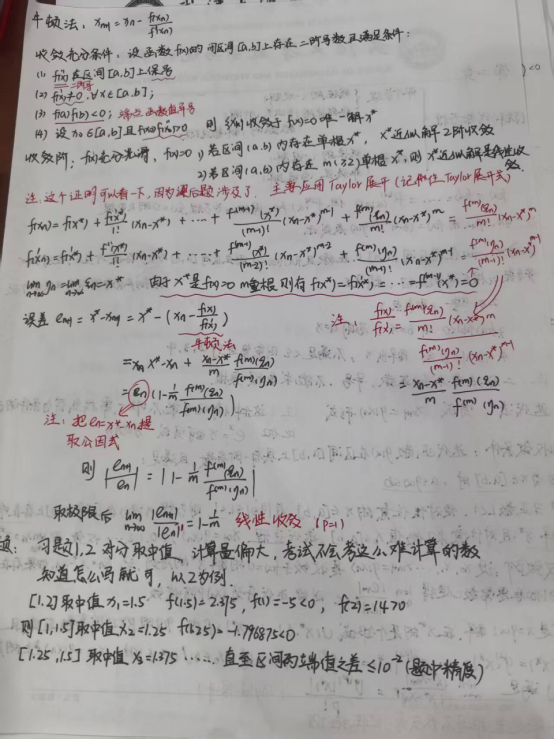 牛顿法: xₙ₊₁ = xₙ - f(xₙ)/f'(xₙ)
收敛充分条件: 设函数f(x)的闭区间[a,b]上存在二阶导数且满足条件:
(1) f''(x)在区间[a,b]上保号
二阶导
(2) f'(x)≠0, ∀x∈[a,b];
(3) f(a)f(b)<0; 端点函数值异号
(4) 设x₀∈[a,b]且f(x₀)f''(x₀)>0 则{xₙ}收敛于f(x)=0唯一解x*
收敛阶: f(x)充分光滑, f(x)=0, 1)若区间(a,b)内存在单根x*, x*近似解2阶收敛
2)若区间(a,b)内存在m(≥2)重根x*, 则x*近似解是线性收敛
注: 这个证明可以看一下, 因为课后题涉及了. 主要应用Taylor展开(记得住Taylor展开式)
f(xₙ) = f(x*) + f'(x*)/1! (xₙ-x*) + ⋯ + f⁽ᵐ⁻¹⁾(x*)/(m-1)! (xₙ-x*)ᵐ⁻¹ + f⁽ᵐ⁾(ξₙ)/m! (xₙ-x*)ᵐ = f⁽ᵐ⁾(ξₙ)/m! (xₙ-x*)ᵐ
f'(xₙ) = f'(x*) + f''(x*)/1! (xₙ-x*) + ⋯ + f⁽ᵐ⁻¹⁾(x*)/(m-2)! (xₙ-x*)ᵐ⁻² + f⁽ᵐ⁾(ηₙ)/(m-1)! (xₙ-x*)ᵐ⁻¹ = f⁽ᵐ⁾(ηₙ)/(m-1)! (xₙ-x*)ᵐ⁻¹
lim n→∞ ηₙ = lim n→∞ ξₙ = x* 由于x*是f(x)=0 m重根 则有f(x*)=f'(x*)=⋯=f⁽ᵐ⁻¹⁾(x*)=0
误差 eₙ₊₁ = x* - xₙ₊₁ = x* - (xₙ - f(xₙ)/f'(xₙ))
牛顿法
注: f(xₙ)/f'(xₙ) = f⁽ᵐ⁾(ξₙ)/m! (xₙ-x*)ᵐ / f⁽ᵐ⁾(ηₙ)/(m-1)! (xₙ-x*)ᵐ⁻¹
= x* - xₙ + (xₙ-x*)/m f⁽ᵐ⁾(ξₙ)/f⁽ᵐ⁾(ηₙ)
= (xₙ-x*)/m f⁽ᵐ⁾(ξₙ)/f⁽ᵐ⁾(ηₙ)
= eₙ(1 - 1/m f⁽ᵐ⁾(ξₙ)/f⁽ᵐ⁾(ηₙ))
注: 把eₙ=x*-xₙ提
取公因式
则 |eₙ₊₁/eₙ| = |1 - 1/m f⁽ᵐ⁾(ξₙ)/f⁽ᵐ⁾(ηₙ)|
取极限后 lim n→∞ |eₙ₊₁|/|eₙ|¹ = 1 - 1/m 线性收敛 (p=1)
习题1,2 对分取中值 计算量偏大, 考试不会考这么难计算的数
知道怎么写就可, 以2为例.
[1,2]取中值 x₁=1.5 f(1.5)=2.375, f(1)=-5<0, f(2)=14>0
则[1,1.5]取中值 x₂=1.25 f(1.25)=-1.796875<0
[1.25,1.5]取中值 x₃=1.375 ⋯⋯ 直至区间两端值之差≤10⁻²(题中精度)